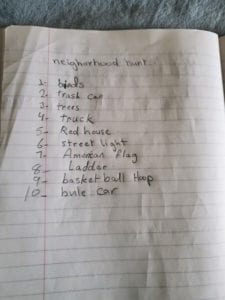 neighorhood hunt
1- birds
2- trash can
3- trees
4- truck
5- Red house
6- street light
7- American flag
8- Ladder
9- basketball Hoop
10- bule car